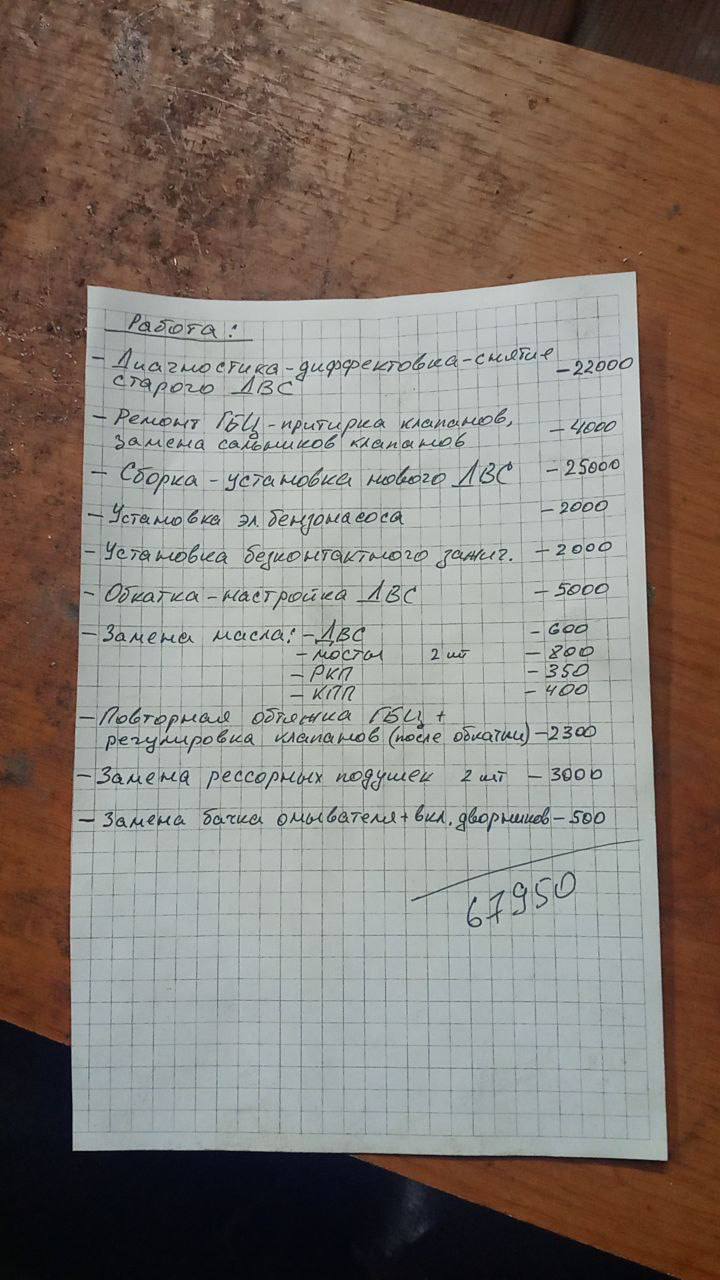 Работа:
- Диагностика-диффектовка-снятие
старого ДВС -22000
- Ремонт ГБЦ-притирка клапанов,
замена сальников клапанов -4000
- Сборка-установка нового ДВС -25000
- Установка эл. бензонасоса -2000
- Установка безконтактного зажиг. -2000
- Обкатка-настройка ДВС -5000
- Замена масла: -ДВС -600
-мосты 2 шт -800
-РКП -350
-КПП -400
- Повторная обтяжка ГБЦ +
регулировка клапанов (после обкатки) -2300
- Замена рессорных подушек 2 шт -3000
- Замена бачка омывателя + вкл. дворников -500
67950